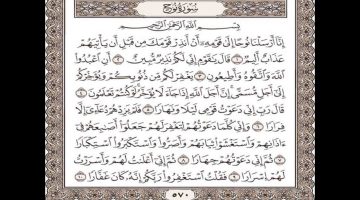 سورة نوح
بسم الله الرحمن الرحيم
إنا أرسلنا نوحا إلى قومه أن أنذر قومك من قبل أن يأتيهم
عذاب أليم ١ قال يقوم إني لكم نذير مبين ٢ أن اعبدوا
الله واتقوه وأطيعون ٣ يغفر لكم من ذنوبكم ويؤخركم
إلى أجل مسمى إن أجل الله إذا جاء لا يؤخر لو كنتم تعلمون ٤
قال رب إني دعوت قومي ليلا ونهارا ٥ فلم يزدهم دعاءي إلا
فرارا ٦ وإني كلما دعوتهم لتغفر لهم جعلوا أصبعهم في
ءاذانهم واستغشوا ثيابهم وأصروا واستكبروا استكبارا
٧ ثم إني دعوتهم جهارا ٨ ثم إني أعلنت لهم وأسررت
لهم إسرارا ٩ فقلت استغفروا ربكم إنه كان غفارا ١٠
٥٧٠